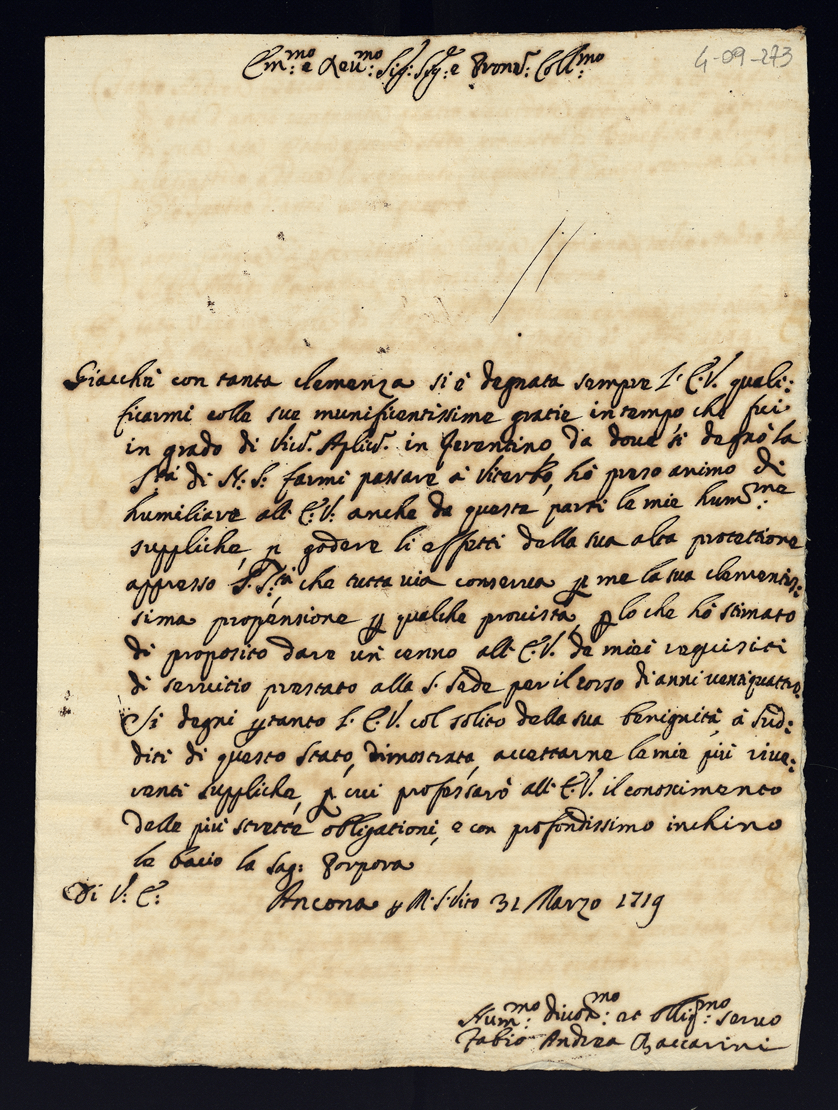 Em:mo e Reu:mo Sig: Sig:e e Pron: Coll:mo
4-09-273
Giacchè con tanta clemenza si è degnata sempre l'E.V. quali:
ficarmi colle sue munificentissime gratie in tempo che fui
in grado di Vic:o Aplic:o in Ferentino, da dove si degnò la
S.tà di N: S: farmi passare à Viterbo, hò preso animo di
humiliare all'E:V: anche da queste parti le mie hum:me
suppliche, p godere li effetti della sua alta protettione
appresso S. S.tà che tutta uia conserua p me la sua clementis:
sima propensione p qualche prouista, p lo che hò stimato
di proposito dare un cenno all'E:V: de miei requisiti
di seruitio prestato alla S. Sede per il corso di anni uentiquattro.
Si degni p tanto l'E.V. col solito della sua benignità, à sud:
diti di questo stato, dimostrata, accettarne le mie più riue:
renti suppliche, p cui professarò all'E.V. il conoscimento
delle più strette obligationi, e con profondissimo inchino
le bacio la sag: Porpora
Di V: E: Ancona p M: S: Vito 31 Marzo 1719
Hum:mo diuot:mo et obblig:mo seruo
Fabio Andrea Baccarini